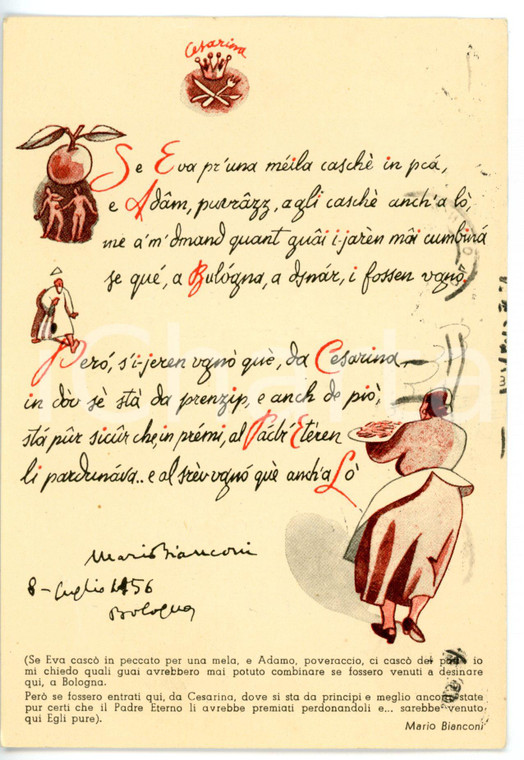 Cesarina
Se Eva pr'una méila caschè in pcá,
e Adâm, puvrâzz, agli caschè anch'a lò,
me a'm' dmand quant guâi i-jarèn mâi cumbiná
se qué, a Bulògna, a dsnár, i fossen vgnò.
Peró, s'i-jeren vgnò què, da Cesarina,
in dóv sè stà da prenzip, e anch de piò,
stá pûr sicûr che, in prémi, al Pádr' Etéren
li pardunáva.. e al srèv vgnó què anch'a Lò
Mario Bianconi
8-luglio 1956
Bologna
(Se Eva cascò in peccato per una mela, e Adamo, poveraccio, ci cascò del pari, io
mi chiedo quali guai avrebbero mai potuto combinare se fossero venuti a desinare
qui, a Bologna.
Però se fossero entrati qui, da Cesarina, dove si sta da principi e meglio ancora state
pur certi che il Padre Eterno li avrebbe premiati perdonandoli e... sarebbe venuto
qui Egli pure).
Mario Bianconi